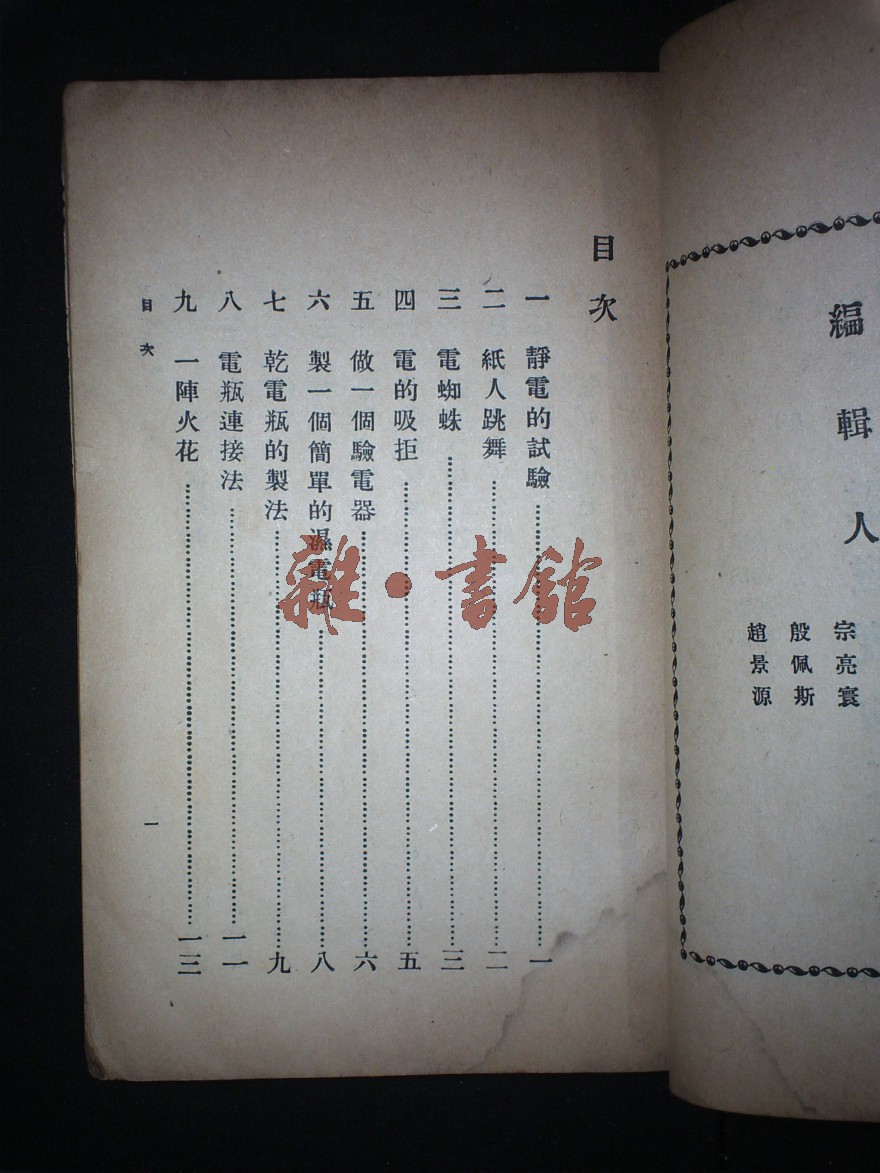 編輯人
宗亮寰
殷佩斯
趙景源
目次
一 靜電的試驗 一
二 紙人跳舞 二
三 電蜘蛛 三
四 電的吸拒 五
五 做一個驗電器 六
六 製一個簡單的濕電瓶 八
七 乾電瓶的製法 九
八 電瓶連接法 一一
九 一陣火花 一三
目次
一
雜·書館